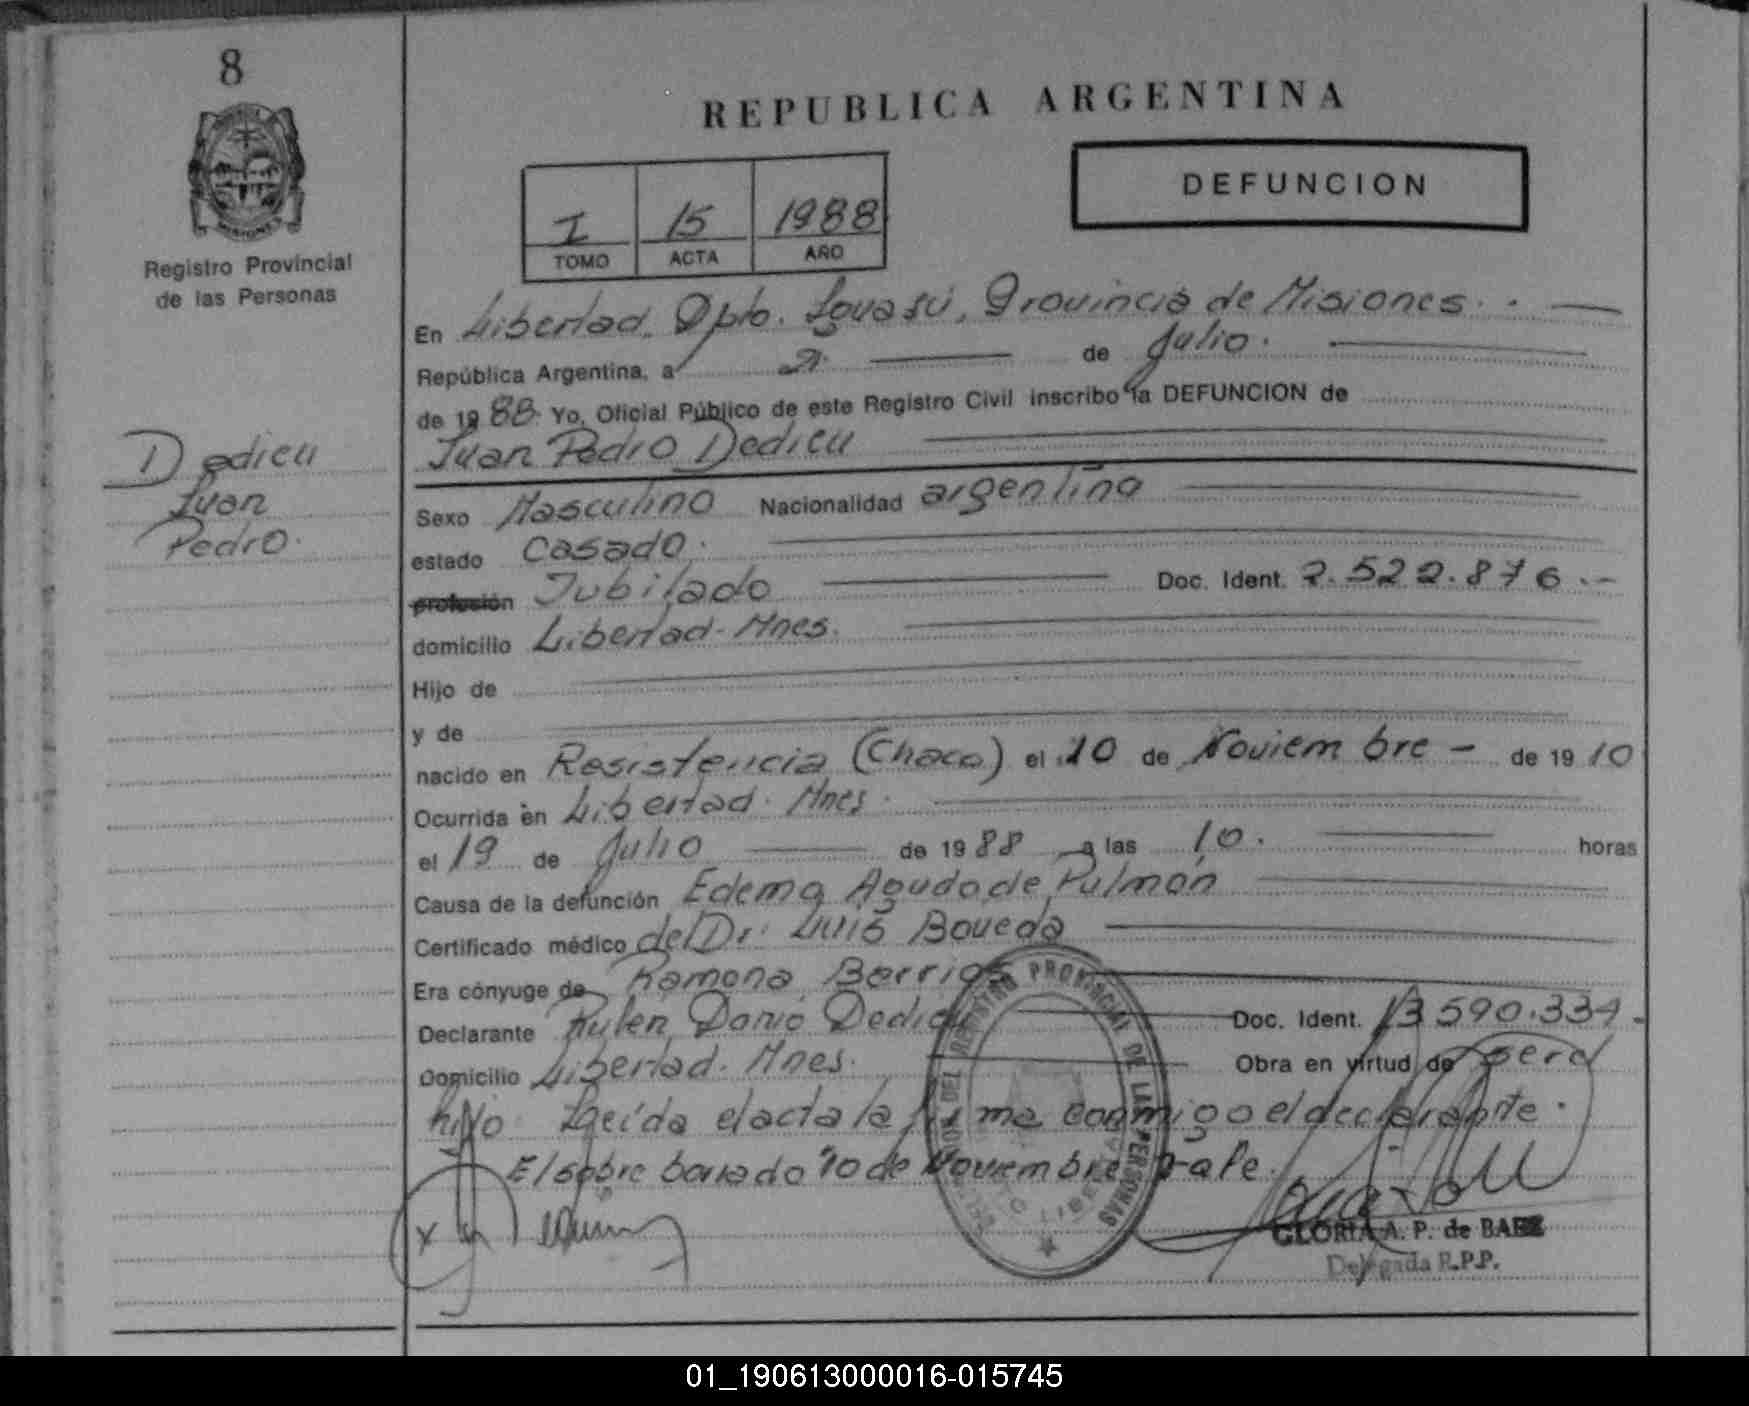 8
REPUBLICA ARGENTINA
DEFUNCION
I 15 1988
TOMO ACTA AÑO
Registro Provincial
de las Personas
En Libertad, Dpto. Iguasú, Provincia de Misiones
República Argentina, a de Julio.
de 1988. Yo, Oficial Público de este Registro Civil inscribo la DEFUNCION de
Juan Pedro Dedieu
Dedieu
Juan
Pedro.
Sexo Masculino Nacionalidad argentina
estado Casado.
profesión Jubilado Doc. Ident. 2.522.876.-
domicilio Libertad-Mnes.
Hijo de
y de
nacido en Resistencia (Chaco) el 10 de Noviembre - de 1910
Ocurrida en Libertad. Mnes.
el 19 de Julio de 1988 a las 10. horas
Causa de la defunción Edema Agudo de Pulmón
Certificado médico del Dr. Luis Boveda
Era cónyuge de Ramona Barrios
Declarante Ruben Dario Dedieu Doc. Ident. 13590.334.
Domicilio Libertad. Mnes. Obra en virtud de ser el
hijo Leída el acta la firma conmigo el declarante.
El sobre borrado 10 de Noviembre vale.
GLORIA A. P. de BAEZ
Delegada R.P.P.
REGISTRO PROVINCIAL DE LAS PERSONAS
01_190613000016-015745